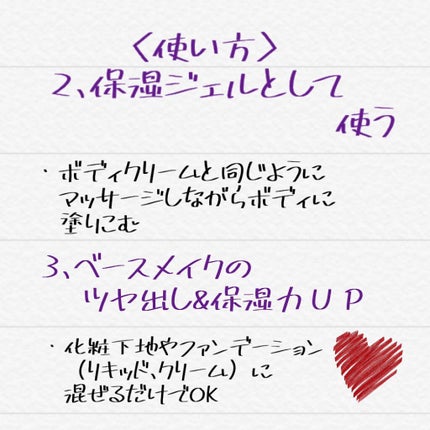 〈使い方〉
2、保湿ジェルとして
使う
・ボディクリームと同じように
マッサージしながらボディに
塗りこむ
3、ベースメイクの
ツヤ出し&保湿力UP
・化粧下地やファンデーション
(リキッド、クリーム)に
混ぜるだけでOK